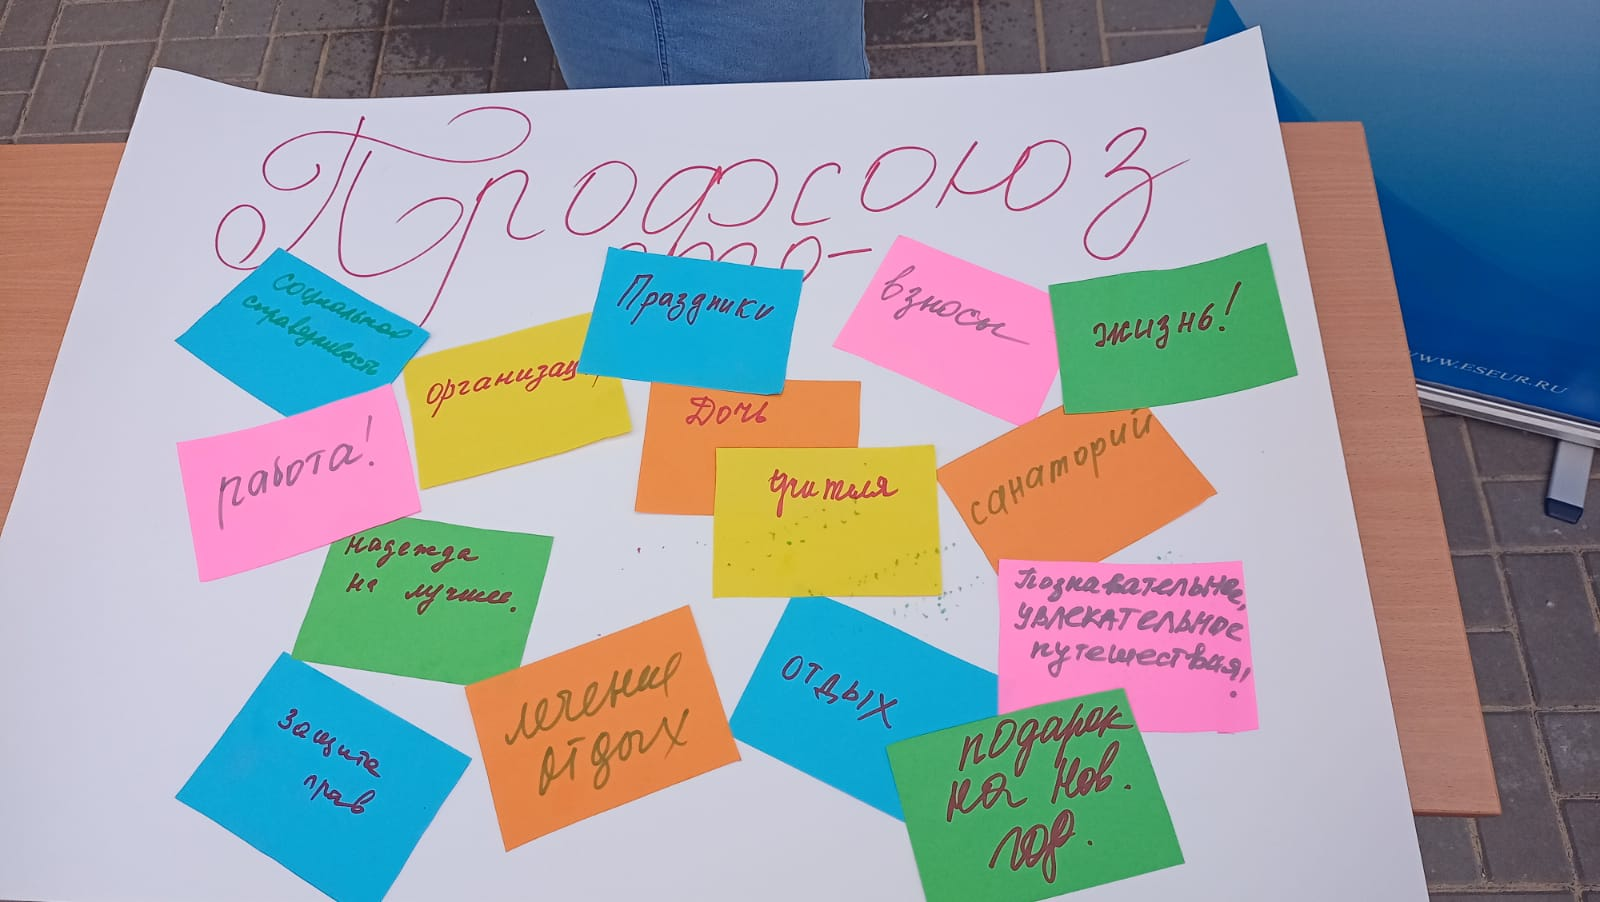 Профсоюз
это-
Социальная
справедливость
организац
Праздники
взносы
жизнь!
работа!
Дочь
учителя
санаторий
надежда
на лучшее.
Познавательное,
увлекательное
путешествия!
защита
прав
лечение
отдых
отдых
подарок
на Нов.
год.
WWW.ESEUR.RU